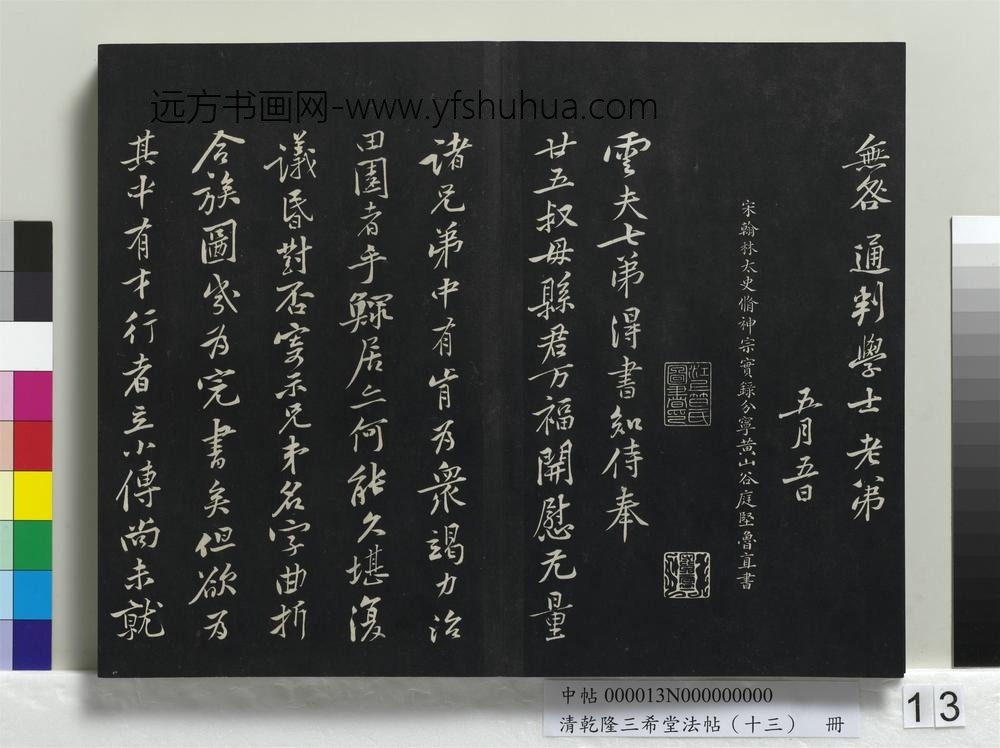 無咎通判學士老弟
五月五日
宋翰林太史脩神宗實錄分寧黃山谷庭堅魯直書
雲夫七弟得書知侍奉
廿五叔母縣君万福開慰无量
諸兄弟中有肯為衆竭力治
田園者乎鰥居亦何能久堪復
議昏對否寄示兄弟名字曲折
合族圖歲為完書矣但欲為
其中有才行者立小傳尚未就
远方书画网-www.yfshuhua.com
中帖 000013N000000000
清乾隆三希堂法帖（十三） 冊
13